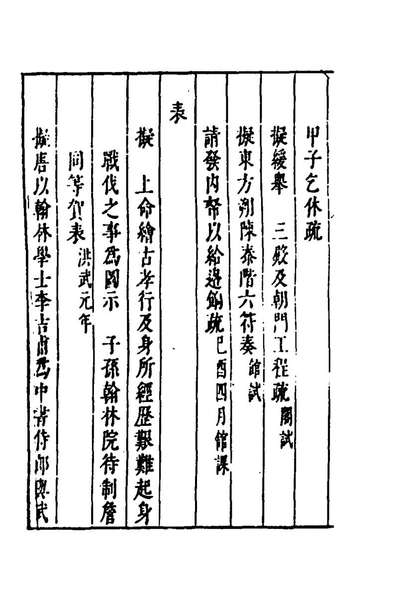 甲子乞休疏
擬緩舉 三殿及朝門工程疏閣試
擬東方朔陳泰階六符奏館試
請發內帑以給邊餉疏己酉四月館課
表
擬 上命繪古孝行及身所經歷艱難起身
戰伐之事為圖示 子孫翰林院待制詹
同等賀表洪武元年
擬唐以翰林學士李吉甫為中書侍郎與武